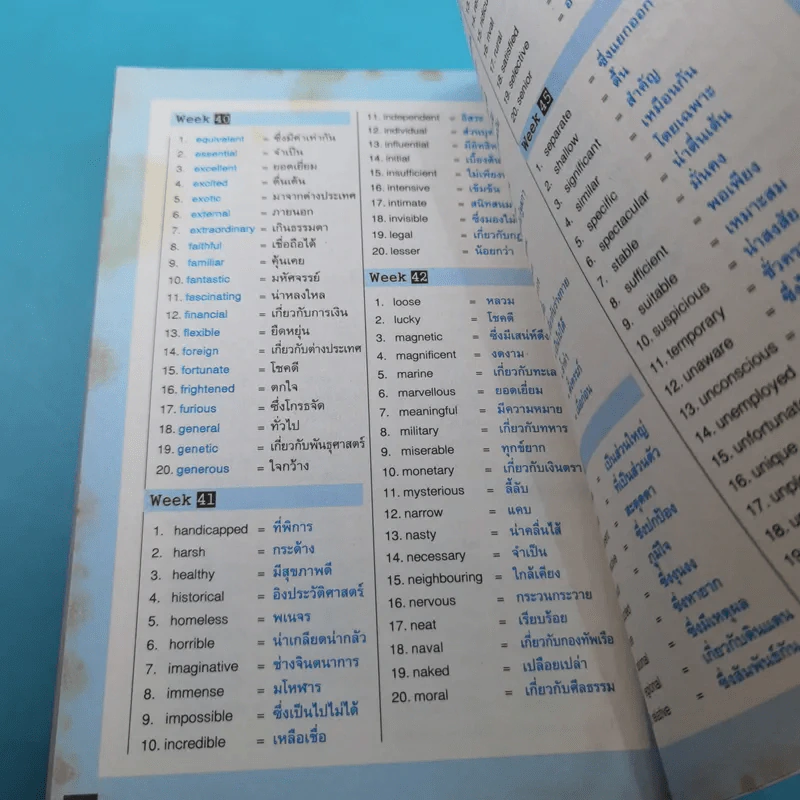 Week 40
1. equivalent = ซึ่งมีค่าเท่ากัน
2. essential = จำเป็น
3. excellent = ยอดเยี่ยม
4. excited = ตื่นเต้น
5. exotic = มาจากต่างประเทศ
6. external = ภายนอก
7. extraordinary = เกินธรรมดา
8. faithful = เชื่อถือได้
9. familiar = คุ้นเคย
10. fantastic = มหัศจรรย์
11. fascinating = น่าหลงใหล
12. financial = เกี่ยวกับการเงิน
13. flexible = ยืดหยุ่น
14. foreign = เกี่ยวกับต่างประเทศ
15. fortunate = โชคดี
16. frightened = ตกใจ
17. furious = ซึ่งโกรธจัด
18. general = ทั่วไป
19. genetic = เกี่ยวกับพันธุศาสตร์
20. generous = ใจกว้าง
Week 41
1. handicapped = ที่พิการ
2. harsh = กระด้าง
3. healthy = มีสุขภาพดี
4. historical = อิงประวัติศาสตร์
5. homeless = พเนจร
6. horrible = น่าเกลียดน่ากลัว
7. imaginative = ช่างจินตนาการ
8. immense = มโหฬาร
9. impossible = ซึ่งเป็นไปไม่ได้
10. incredible = เหลือเชื่อ
11. independent = อิสระ
12. individual =
13. influential =
14. initial = เบื้องต้น
15. insufficient = ไม่เพียง
16. intensive = เข้มข้น
17. intimate = สนิทสนม
18. invisible = ซึ่งมองไม่
19. legal = เกี่ยวกับกฎ
20. lesser = น้อยกว่า
Week 42
1. loose = หลวม
2. lucky = โชคดี
3. magnetic = ซึ่งมีเสน่ห์ดึง
4. magnificent = งดงาม
5. marine = เกี่ยวกับทะเล
6. marvellous = ยอดเยี่ยม
7. meaningful = มีความหมาย
8. military = เกี่ยวกับทหาร
9. miserable = ทุกข์ยาก
10. monetary = เกี่ยวกับเงินตรา
11. mysterious = ลี้ลับ
12. narrow = แคบ
13. nasty = น่าคลื่นไส้
14. necessary = จำเป็น
15. neighbouring = ใกล้เคียง
16. nervous = กระวนกระวาย
17. neat = เรียบร้อย
18. naval = เกี่ยวกับกองทัพเรือ
19. naked = เปลือยเปล่า
20. moral = เกี่ยวกับศีลธรรม
16. rival
17. rural
18. satisfied
19. selective
20. senior
Week 45
1. separate = ซึ่งแยกออก
2. shallow = ตื้น
3. significant = สำคัญ
4. similar = เหมือนกัน
5. specific = โดยเฉพาะ
6. spectacular = น่าตื่นเต้น
7. stable = มั่นคง
8. sufficient = พอเพียง
9. suitable = เหมาะสม
10. suspicious = น่าสงสัย
11. temporary =
12. unaware =
13. unconscious =
14. unemployed
15. unfortunate
16. unique
เป็นส่วนใหญ่
ที่เป็นส่วนตัว
ซึ่งปกป้อง
ภูมิใจ
ซึ่งหายาก
ซึ่งมีเหตุผล
เกี่ยวกับดินแดน
ซึ่งสัมพันธ์กัน